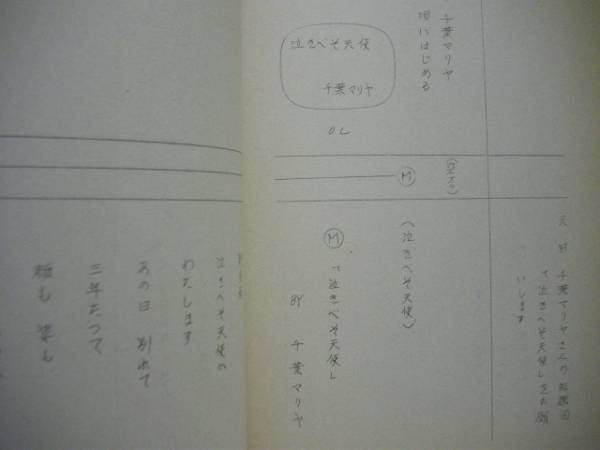 千葉マリヤ
唄いはじめる
泣きべそ天使
千葉マリヤ
OL
M
千葉マリヤさんの
「泣きべそ天使」をお願
いします
〈泣きべそ天使〉
M 「泣きべそ天使」
BY 千葉マリヤ
泣きべそ天使の
わたします
あの日 別れて
三年たって
姿も